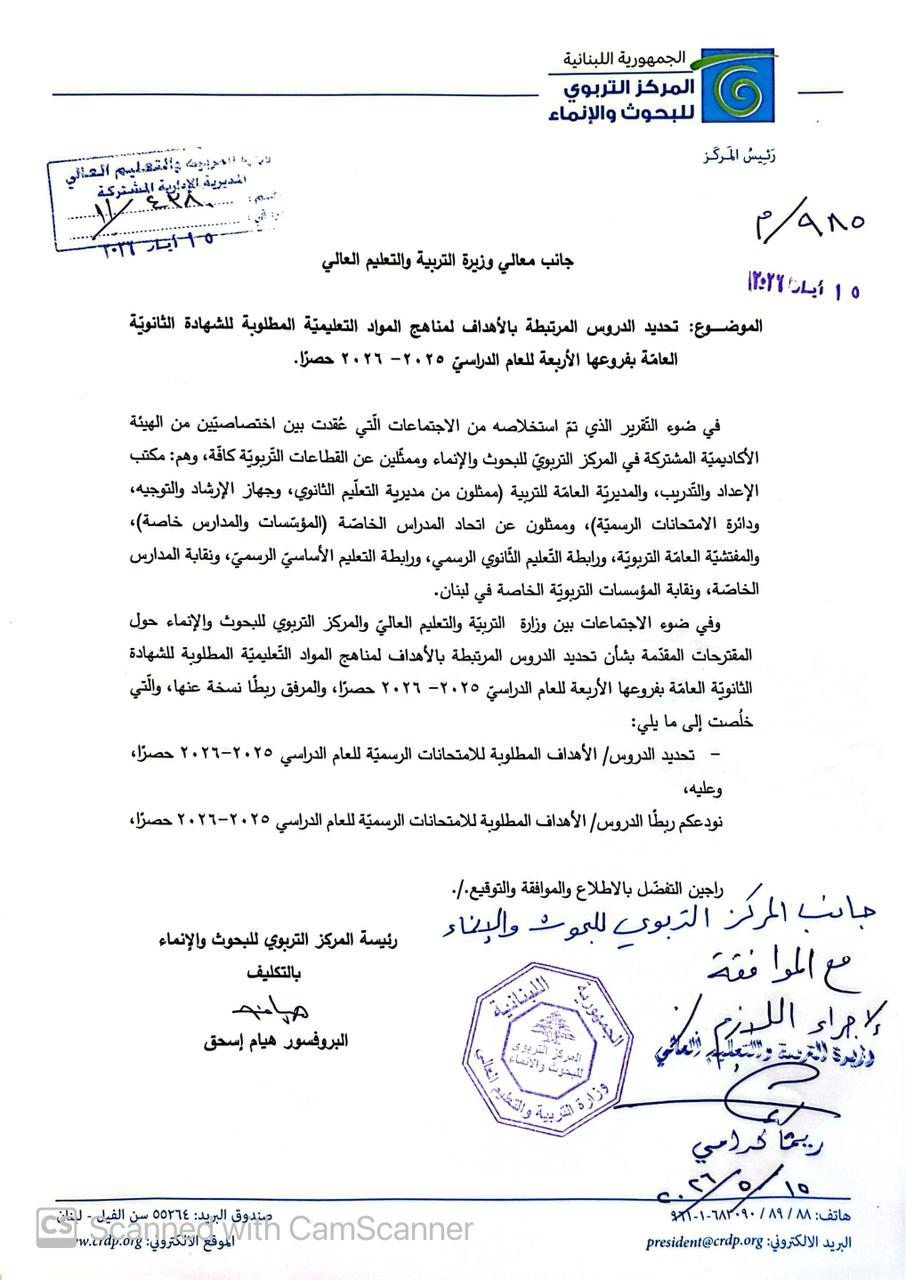 الجمهورية اللبنانية
المركز التربوي
للبحوث والإنماء
رَئيسُ المَركَز
والتعليم العالي
المديرية الإدارية المشتركة
١١/٤٣٨٠
١٥ أيار ٢٠٢٦
٩٨٥/م
١٥ أيار ٢٠٢٦
جانب معالي وزيرة التربية والتعليم العالي
الموضـــوع: تحديد الدروس المرتبطة بالأهداف لمناهج المواد التعليميّة المطلوبة للشهادة الثانويّة
العامّة بفروعها الأربعة للعام الدراسيّ ٢٠٢٥- ٢٠٢٦ حصرًا.
في ضوء التّقرير الذي تمّ استخلاصه من الاجتماعات الّتي عُقدت بين اختصاصيّين من الهيئة
الأكاديميّة المشتركة في المركز التربويّ للبحوث والإنماء وممثّلين عن القطاعات التّربويّة كافّة، وهم: مكتب
الإعداد والتّدريب، والمديريّة العامّة للتربية (ممثلون من مديرية التعلّيم الثانوي، وجهاز الإرشاد والتوجيه،
ودائرة الامتحانات الرسميّة)، وممثلون عن اتحاد المدراس الخاصّة (المؤسّسات والمدارس خاصة)،
والمفتشيّة العامّة التربويّة، ورابطة التّعليم الثّانوي الرسمي، ورابطة التعليم الأساسيّ الرسميّ، ونقابة المدارس
الخاصّة، ونقابة المؤسسات التربويّة الخاصة في لبنان.
وفي ضوء الاجتماعات بين وزارة التربيّة والتعليم العاليّ والمركز التربوي للبحوث والإنماء حول
المقترحات المقدّمة بشأن تحديد الدروس المرتبطة بالأهداف لمناهج المواد التّعليميّة المطلوبة للشهادة
الثانويّة العامّة بفروعها الأربعة للعام الدراسيّ ٢٠٢٥- ٢٠٢٦ حصرًا، والمرفق ربطًا نسخة عنها، والّتي
خلُصت إلى ما يلي:
- تحديد الدروس/ الأهداف المطلوبة للامتحانات الرسميّة للعام الدراسي ٢٠٢٥-٢٠٢٦ حصرًا،
وعليه،
نودعكم ربطًا الدروس/ الأهداف المطلوبة للامتحانات الرسميّة للعام الدراسي ٢٠٢٥-٢٠٢٦ حصرًا،
راجين التفضّل بالاطلاع والموافقة والتوقيع./.
جانب المركز التربوي للبحوث والإنماء
مع الموافقة
لإجراء اللازم
وزيرة التربية والتعليم العالي
ريما كرامي
١٥/٥/٢٠٢٦
رئيسة المركز التربوي للبحوث والإنماء
بالتكليف
هيام
البروفسور هيام إسحق
الجمهورية اللبنانية
المركز التربوي
للبحوث والانماء
وزارة التربية والتعليم العالي
هاتف: ٨٨ / ٨٩ / ٦٨٢٠٩٠-١-٩٦١
صندوق البريد: ٥٥٢٦٤ سن الفيل - لبنان
البريد الالكتروني: president@crdp.org
الموقع الالكتروني: www.crdp.org
CS Scanned with CamScanner